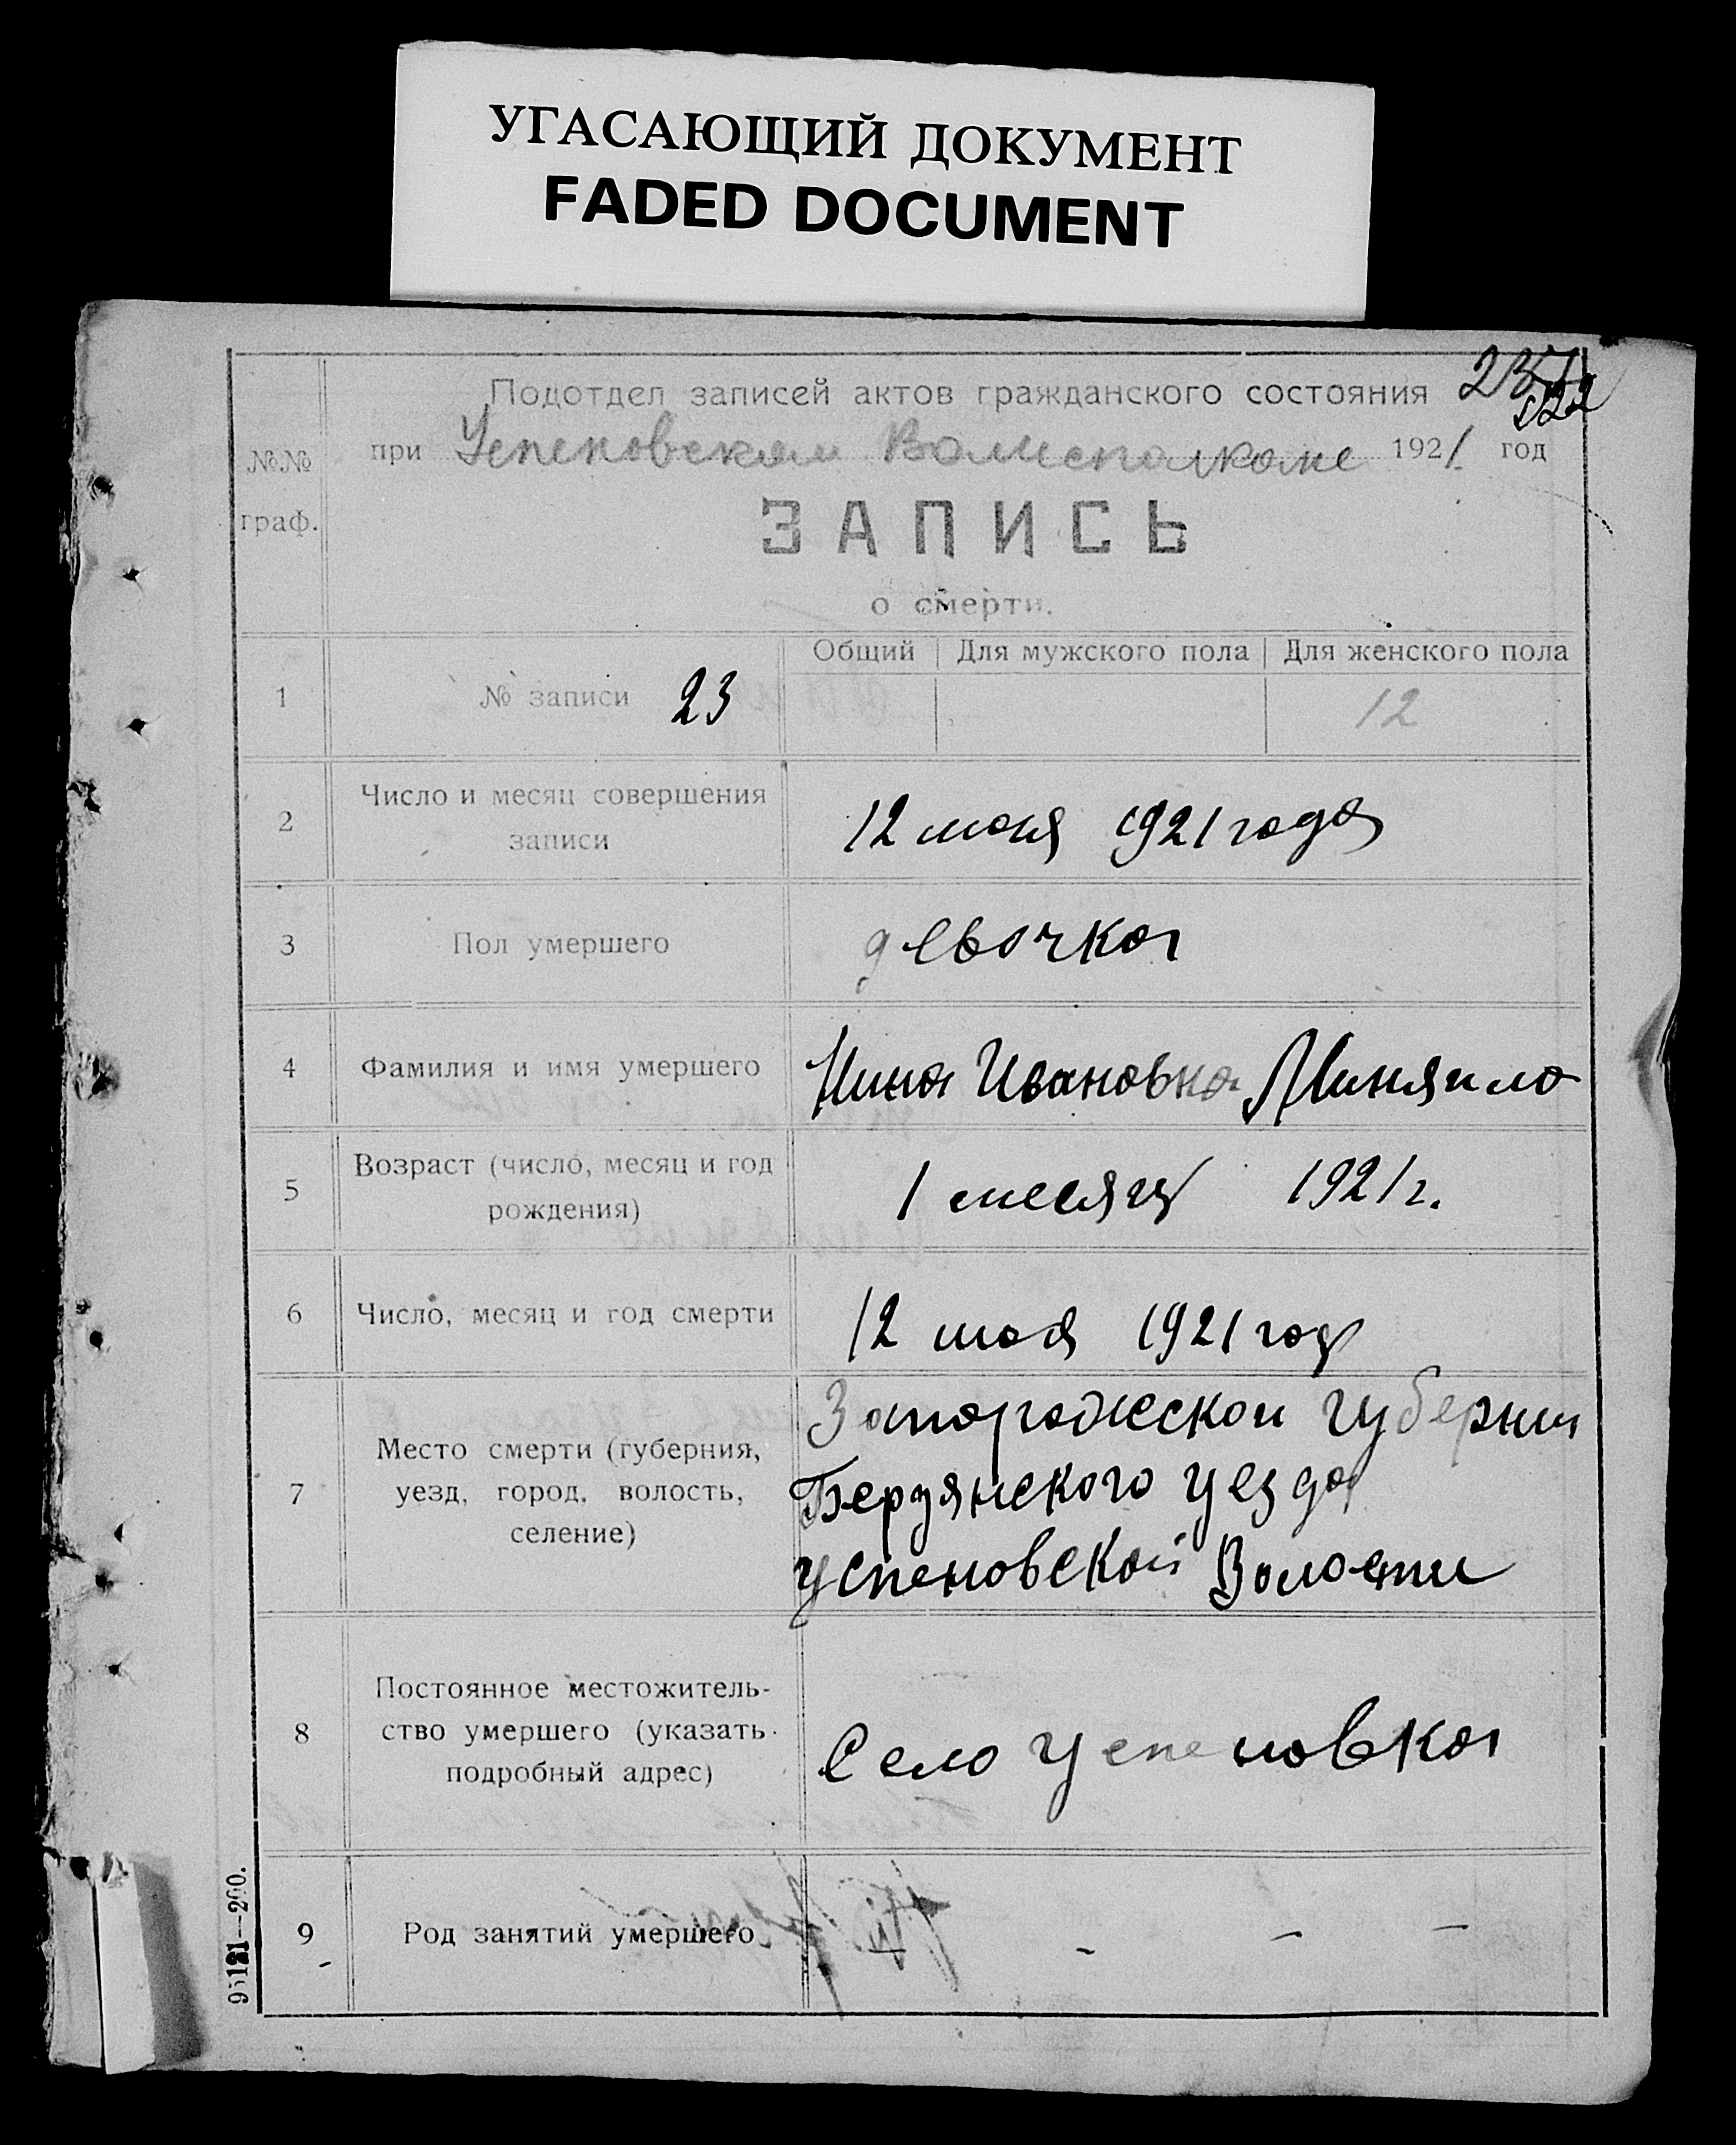 УГАСАЮЩИЙ ДОКУМЕНТ
FADED DOCUMENT
Подотдел записей актов гражданского состояния
при Успеновском Волисполкоме 1921 год
№№
граф.
ЗАПИСЬ
о смерти.
Общий Для мужского пола Для женского пола
1 № записи 23 12
2 Число и месяц совершения
записи
12 мая 1921 года
3 Пол умершего девочка
4 Фамилия и имя умершего Нина Ивановна Миняило
5 Возраст (число, месяц и год
рождения)
1 месяц 1921 г.
6 Число, месяц и год смерти 12 мая 1921 год
7 Место смерти (губерния,
уезд, город, волость,
селение)
Запорожской губернии
Бердянского уезда
Успеновской Волости
8 Постоянное местожитель-
ство умершего (указать
подробный адрес)
Село Успеновка
9 Род занятий умершего — - - -